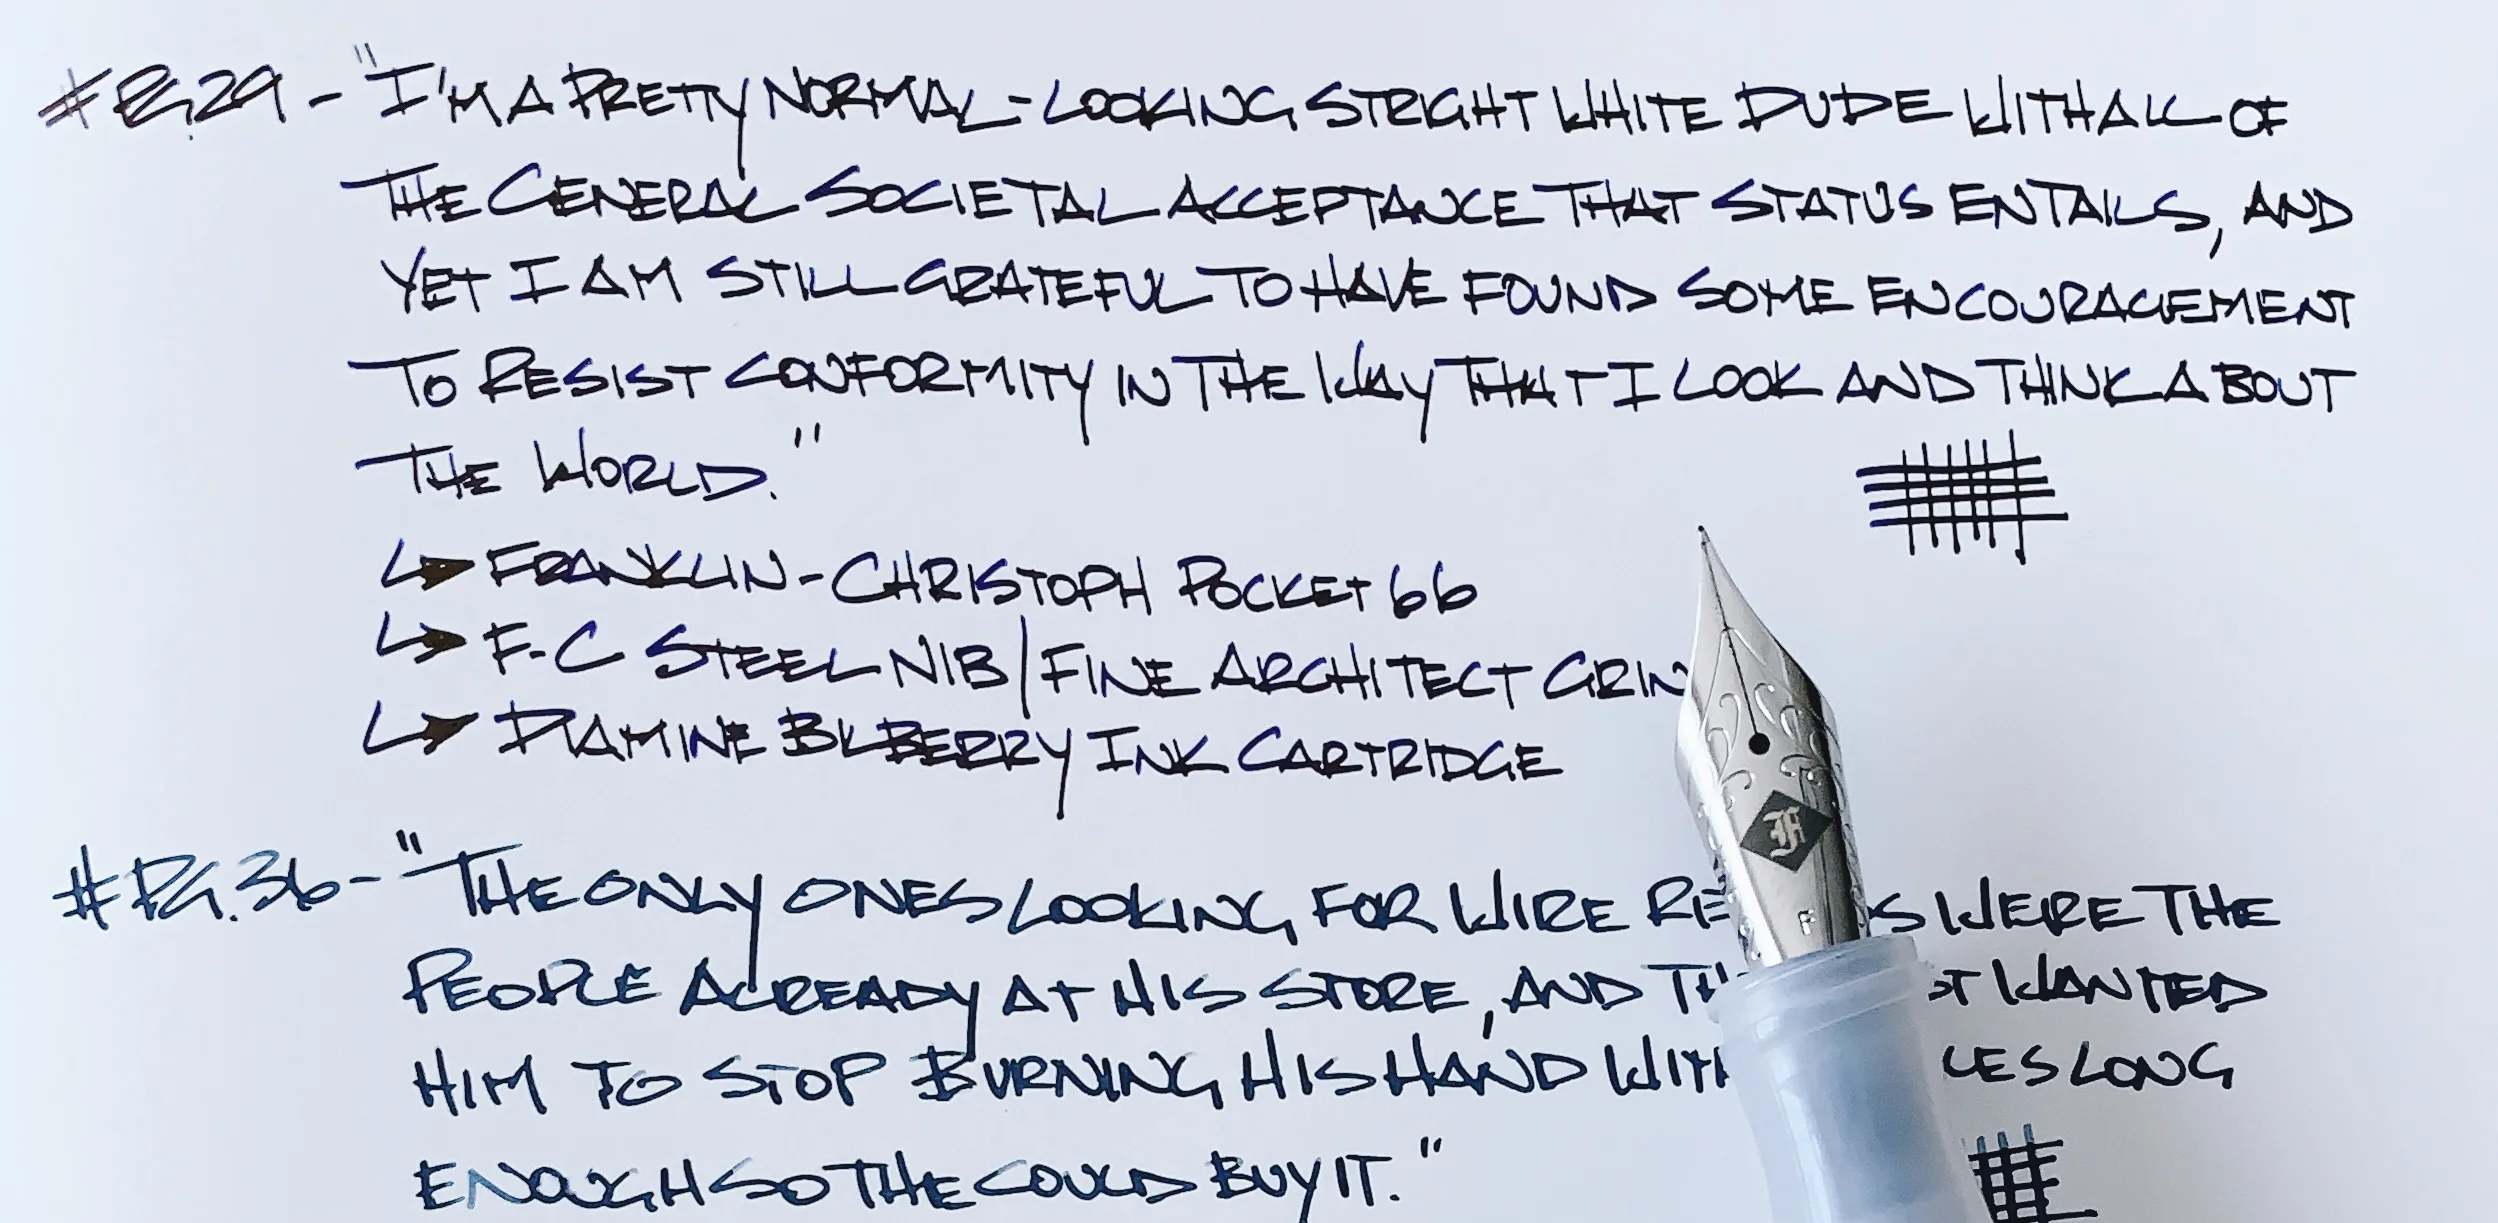 #PG.29 - "I'M A PRETTY NORMAL-LOOKING STRIGHT WHITE DUDE WITH ALL OF
THE GENERAL SOCIETAL ACCEPTANCE THAT STATUS ENTAILS, AND
YET I AM STILL GRATEFUL TO HAVE FOUND SOME ENCOURAGEMENT
TO RESIST CONFORMITY IN THE WAY THAT I LOOK AND THINK ABOUT
THE WORLD."
↳ FRANKLIN-CHRISTOPH POCKET 66
↳ F-C STEEL NIB / FINE ARCHITECT GRIN
↳ DIAMINE BILBERRY INK CARTRIDGE
#PG.36 - "THE ONLY ONES LOOKING FOR WIRE WERE THE
PEOPLE ALREADY AT HIS STORE, AND WANTED
HIM TO STOP BURNING HIS HAND LONG
ENOUGH SO THE COULD BUY IT."
F
F